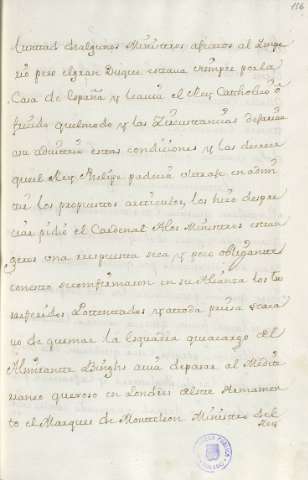 116
luntad de algunos Ministros afectos al Impe
rio pero el gran Duque estava siempre por la
Casa de España y havia el Rey Catholico o
frecido quel modo y las Circunstancias dejaria
a su advitrio estas condiciones y las
que el Rey Phelipe padecia de trase en admi
tir los propuestos articulos, los hizo despre
ciar pidió el Cardenal Alos Ministros estran
geros una respuesta seca y poco obligante
con esto se confirmaron en su Alianza los tres
referidos Potentados y a toda priesa
va de quemar la Esquadra que a cargo del
Almirante Binghs avia de pasar al Medite
rraneo que roso en Londres de este Armamen
to el Marques de Monteleon Ministro del
Rey